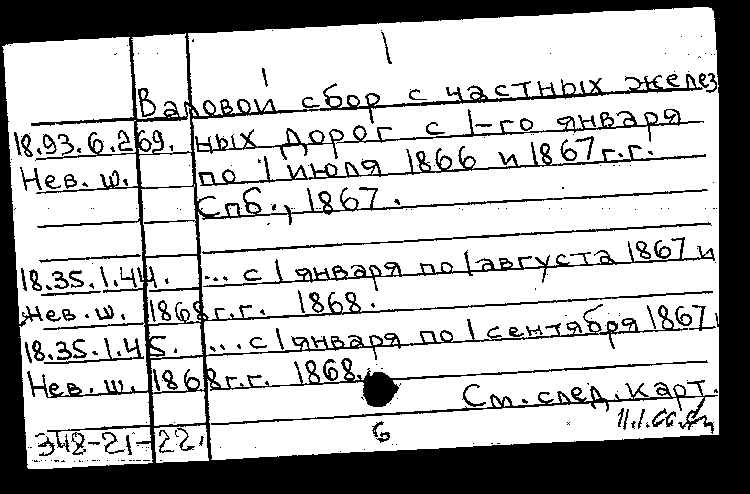 Валовой сбор с частных желез
18.93.6.269. ных дорог с 1-го января
Нев. ш. по 1 июля 1866 и 1867 г.г.
Спб., 1867.
18.35.1.44. ... с 1 января по 1 августа 1867 и
Нев. ш. 1868 г.г. 1868.
18.35.1.45. ... с 1 января по 1 сентября 1867 и
Нев. ш. 1868 г.г. 1868.
См. след. карт.
348-21-22. 6 11.1.66.